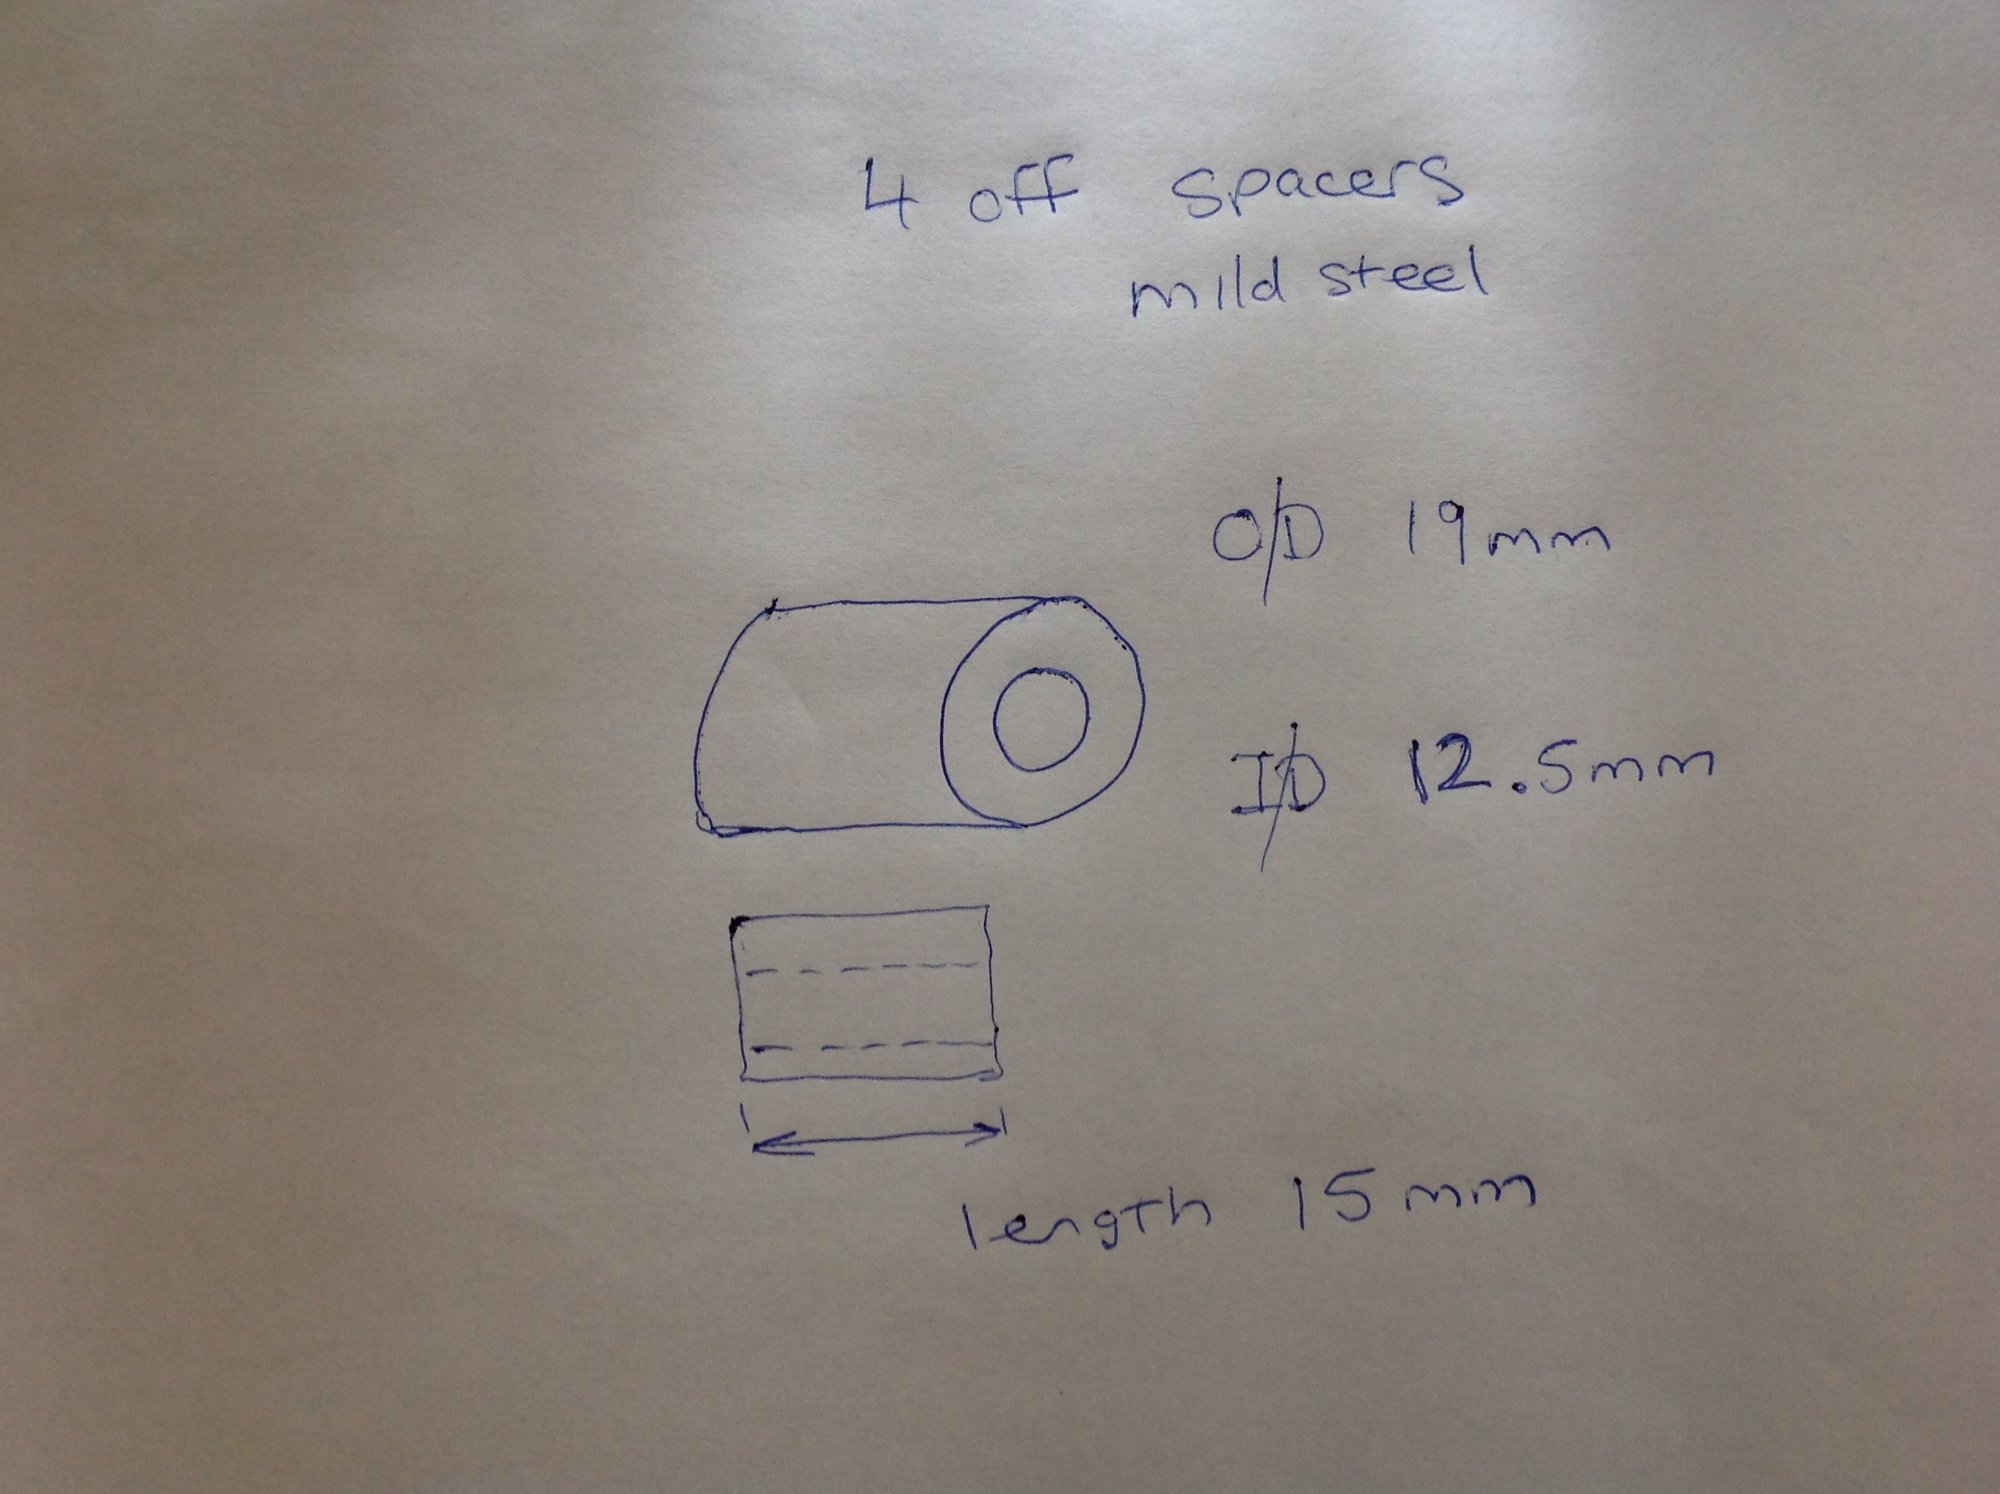 4 off spacers
mild steel
O/D 19mm
I/D 12.5mm
length 15mm